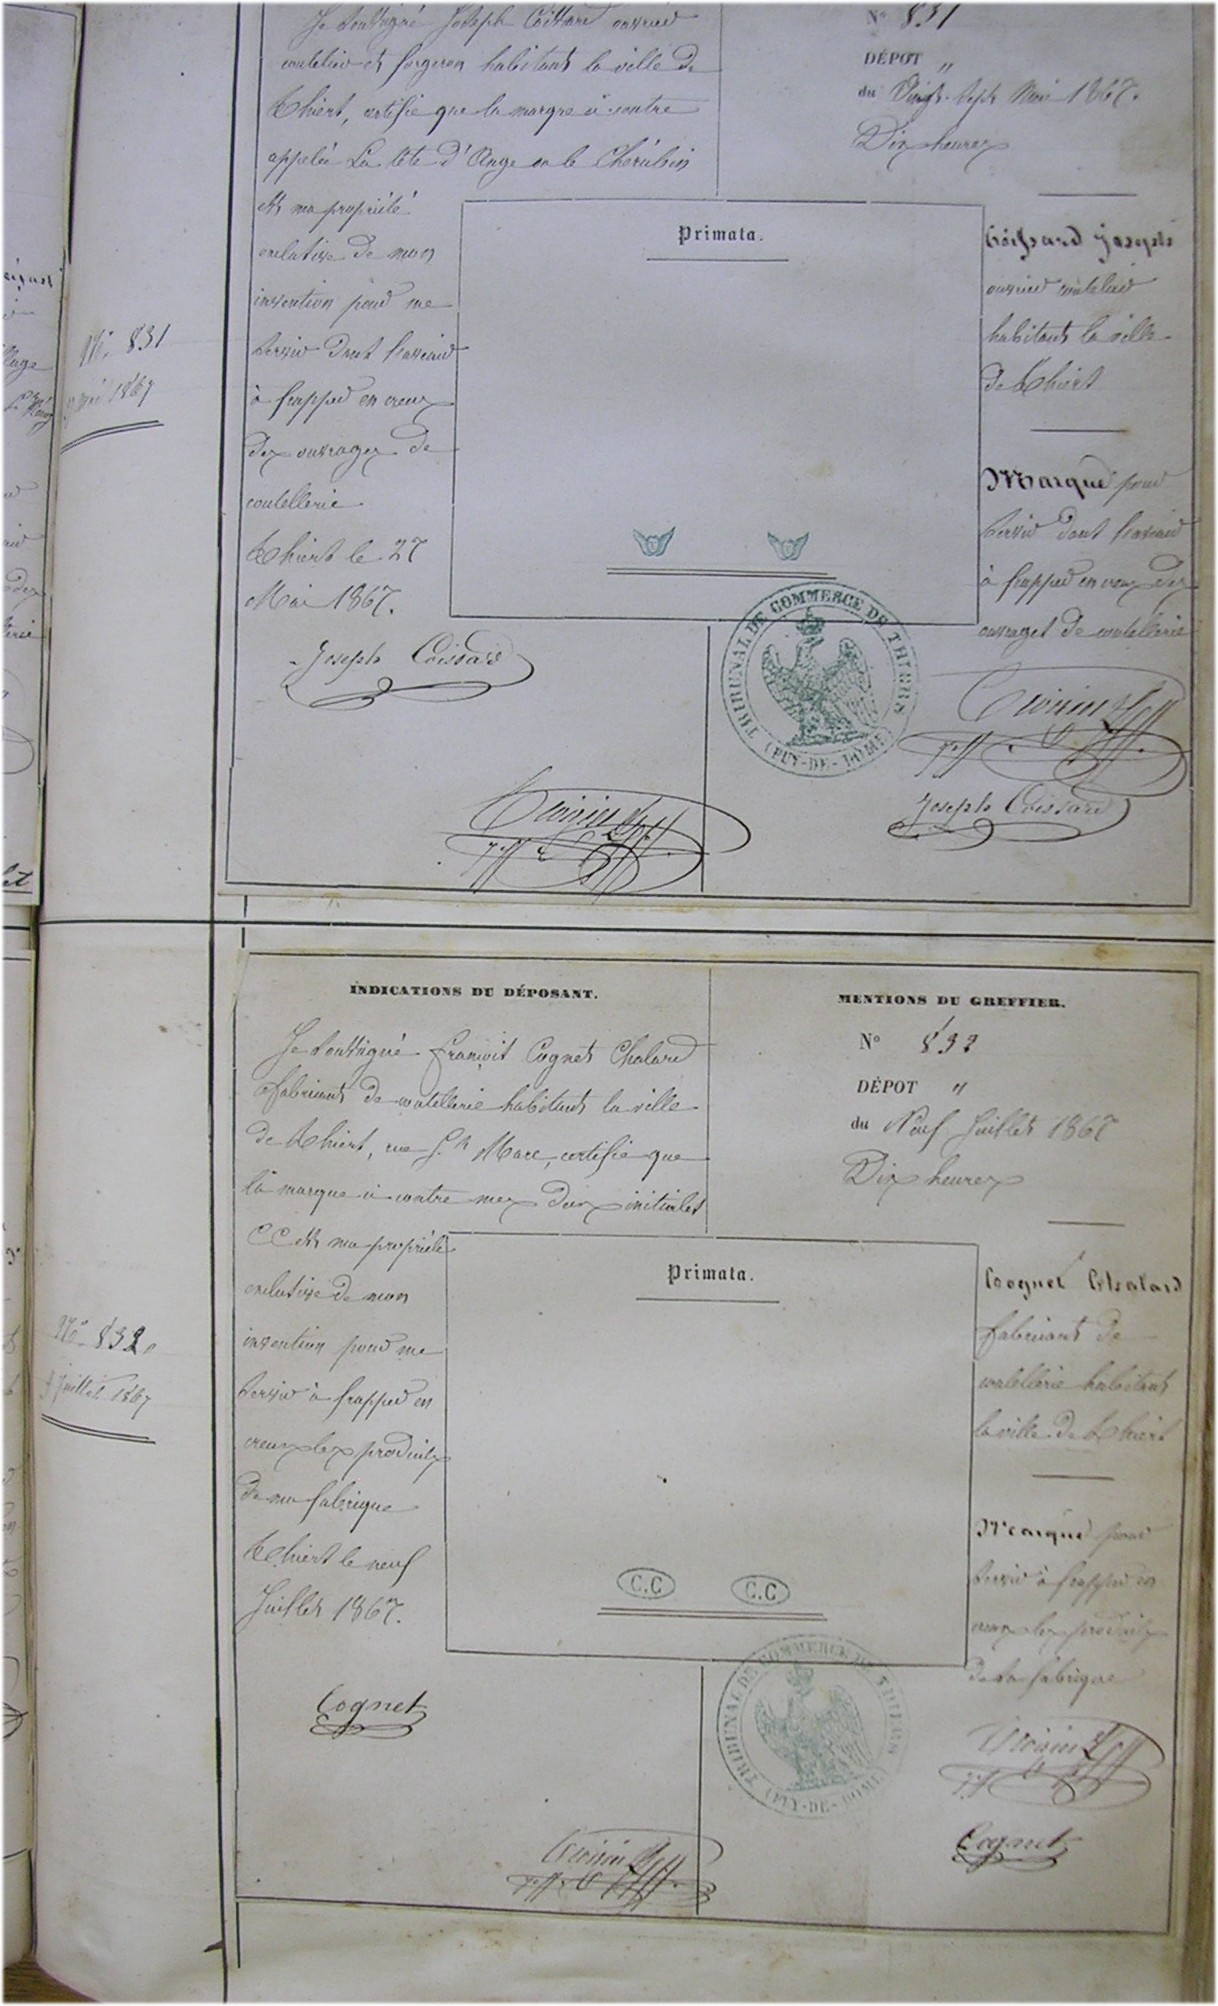 Je soussigné Joseph Coissard ouvrier
coutelier et forgeron habitant la ville de
Thiers, certifie que la marque ci contre
appelée La tête d'Ange ou le Chérubin
est ma propriété
exclusive de mon
invention pour me
servir dans l'avenir
à frapper en creux
des ouvrages de
coutellerie
Thiers le 27
Mai 1867.
Joseph Coissard
N° 831
DÉPOT "
du Vingt-Sept Mai 1867.
Dix heures
Primata.
Coissard Joseph
ouvrier coutelier
habitant la ville
de Thiers
Marque pour
servir dans l'avenir
à frapper en creux des
ouvrages de coutellerie
Joseph Coissard
TRIBUNAL DE COMMERCE DE THIERS
(PUY-DE-DÔME)
N° 831
mai 1867
INDICATIONS DU DÉPOSANT.
Je soussigné François Cognet Chalard
fabricant de coutellerie habitant la ville
de Thiers, rue St Marc, certifie que
la marque ci contre mes deux initiales
CC est ma propriété
exclusive de mon
invention pour me
servir à frapper en
creux les produits
de ma fabrique
Thiers le neuf
Juillet 1867.
Cognet
MENTIONS DU GREFFIER.
N° 832
DÉPOT "
du Neuf Juillet 1867
Dix heures
Primata.
C.C C.C
Cognet Chalard
fabricant de
coutellerie habitant
la ville de Thiers
Marque pour
servir à frapper en
creux les produits
de sa fabrique
Cognet
TRIBUNAL DE COMMERCE DE THIERS
(PUY-DE-DÔME)
N° 832
juillet 1867